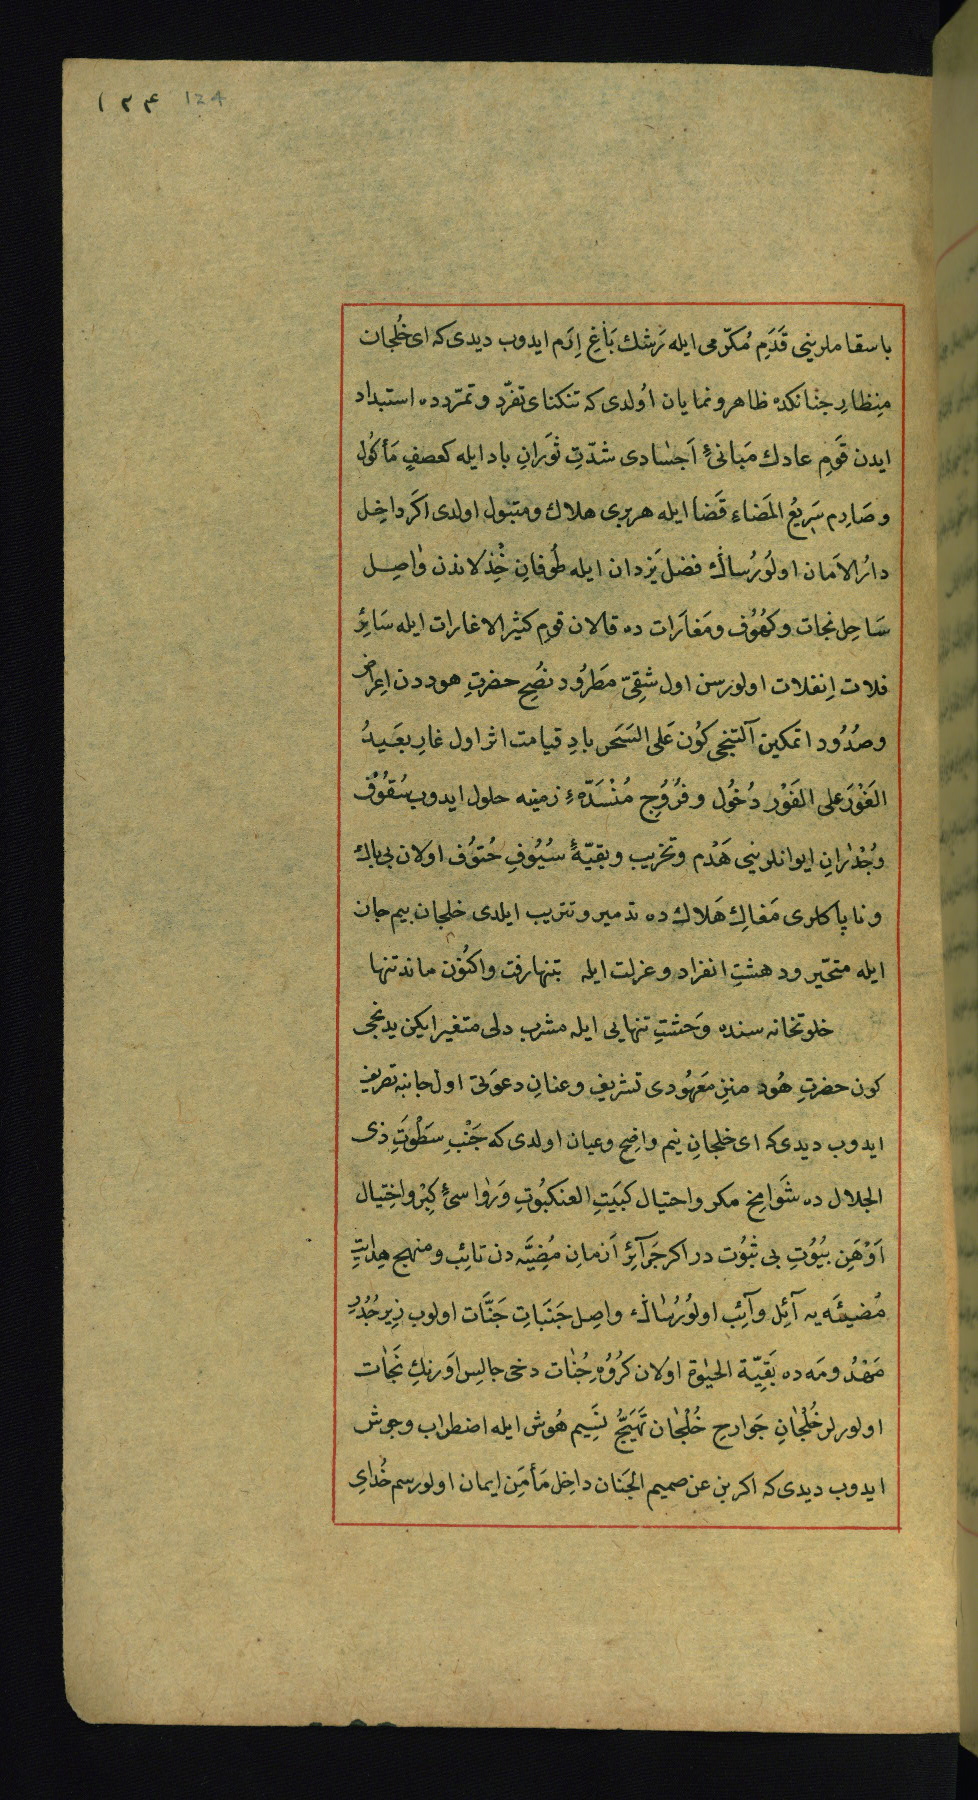 ۱۲۴ 124
باسقاملرینی قَدَمِ مُکرّمی ایله رَشك بَاغِ اِرَم ایدوب دیدی که ای خُلجان
مِنظارِ جنانکده ظاهر ونمایان اوُلدی که تنکنای تفرّد وتمرّدده استبداد
ایدن قَوِم عادك مَبانیٔ اَجسٰادی شدّتِ ثوَرانِ باد ایله کعصفٍ مَأکوُل
وصَارِم سَرِیعُ المَضاء قَضا ایله هر بری هلاك ومتبول اولدی اکَر داخِل
دارُ الاَمان اولوُرسڭ فضل یَزدان ایله طُوفانِ خِذلاندن وٰاصِل
سَاحِل نجات وکهُوُف ومَغاَرات ده قالان قومِ کثیر الاغارات ایله سَائِرِ
فلات اِنفلات اولورسن اول شقِیّ مَطرُود نصُحِ حضرتِ هوددن اِعراض
وصدُوُد اتمکین آلتنجی کوُن عَلی السَحَر بادِ قیامت اثر اول غارِ بعَیدُ
الغَوْر عَلی الفَوْر دُخوُل وفرُوُج مُنْسَدّهٔ زمینه حلول ایدوب سُقوُفْ
وجُدْرٰانِ ایوانلرینی هَدْم وتخریب وبقیّهٔ سُیُوفِ حُتوُف اولان بی باك
وناپاکلری مَغاكِ هَلاكده تدمیر وتتریب ایلدی خلجان بیم جان
ایله متحیّر ودهشتِ انفراد وعزلت ایله تنها رفت واکنوُن ماند تنها
خلوتخانه سنده وَحشتِ تنهایی ایله مشرب دلی متغیر ایکن یدنجی
کون حضرتِ هُود منزِن مَعهُودی تشریف وعنانِ دعوَتی اول جانبه تصریف
ایدوب دیدی که ای خلجانِ نیم واضِح وعیان اولدی که جَنْبِ سَطْوَتِ ذی
الجلال ده شَوَامِخ مکر واحتیال کبَیَتِ العنکبُوتِ وَرَوٰاسیٔ کِبْر واخِتِیال
اَوْهَنِ بیُوُتِ بی ثبُوُت در اکر جَرآئِرِ اَزمانِ مُضِیَّه دن تائِب ومنهجِ هِدٰایتِ
مُضیئهَ یه آئِل وآئِب اولوُرْسٰاڭ واصِل جَنَبَاتِ جَنَّات اولوب زِیر جُدُرِ
مَهْدُومَه ده بَقِیّة الحیٰوة اوُلان کرُوُهِ جُنٰات دخی جالِسِ اوَرنكِ نَجَات
اولورلر خُلْجٰانِ جَوارحِ خُلْجٰان تَهَیّجُ نسَیم هُوش ایله اضطراب وجوش
ایدوب دیدی که اکر بن عن صمیم الجَنان داخِل مَأمَنِ ایمان اولورسم خُدٰایِ